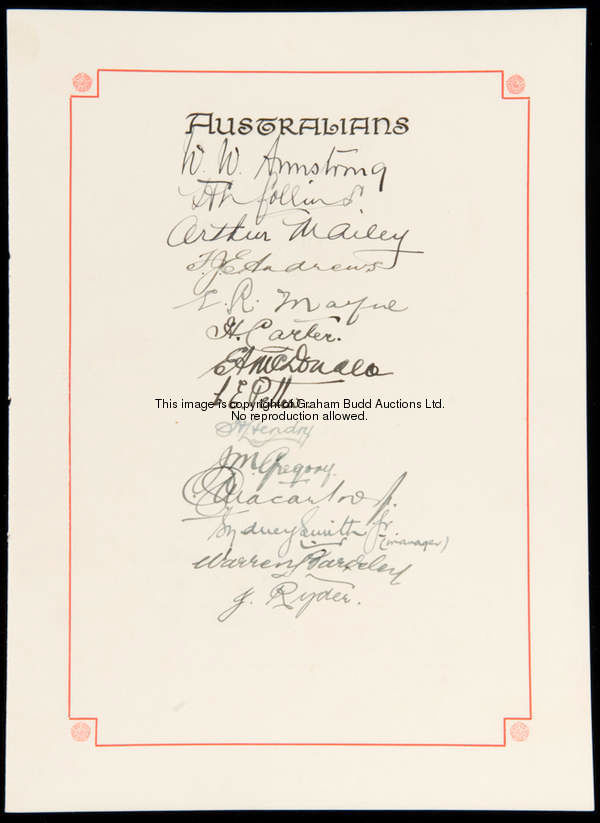 AUSTRALIANS
W. W. Armstrong
H L Collins
Arthur Mailey
T.J.E Andrews
E. R. Mayne
H. Carter.
E A McDonald
C E Pellew
This image is copyright of Graham Budd Auctions Ltd.
No reproduction allowed.
H L Hendry
J M Gregory.
C G Macartney.
Sydney Smith Jr
(manager)
Warren Bardsley
J. Ryder.